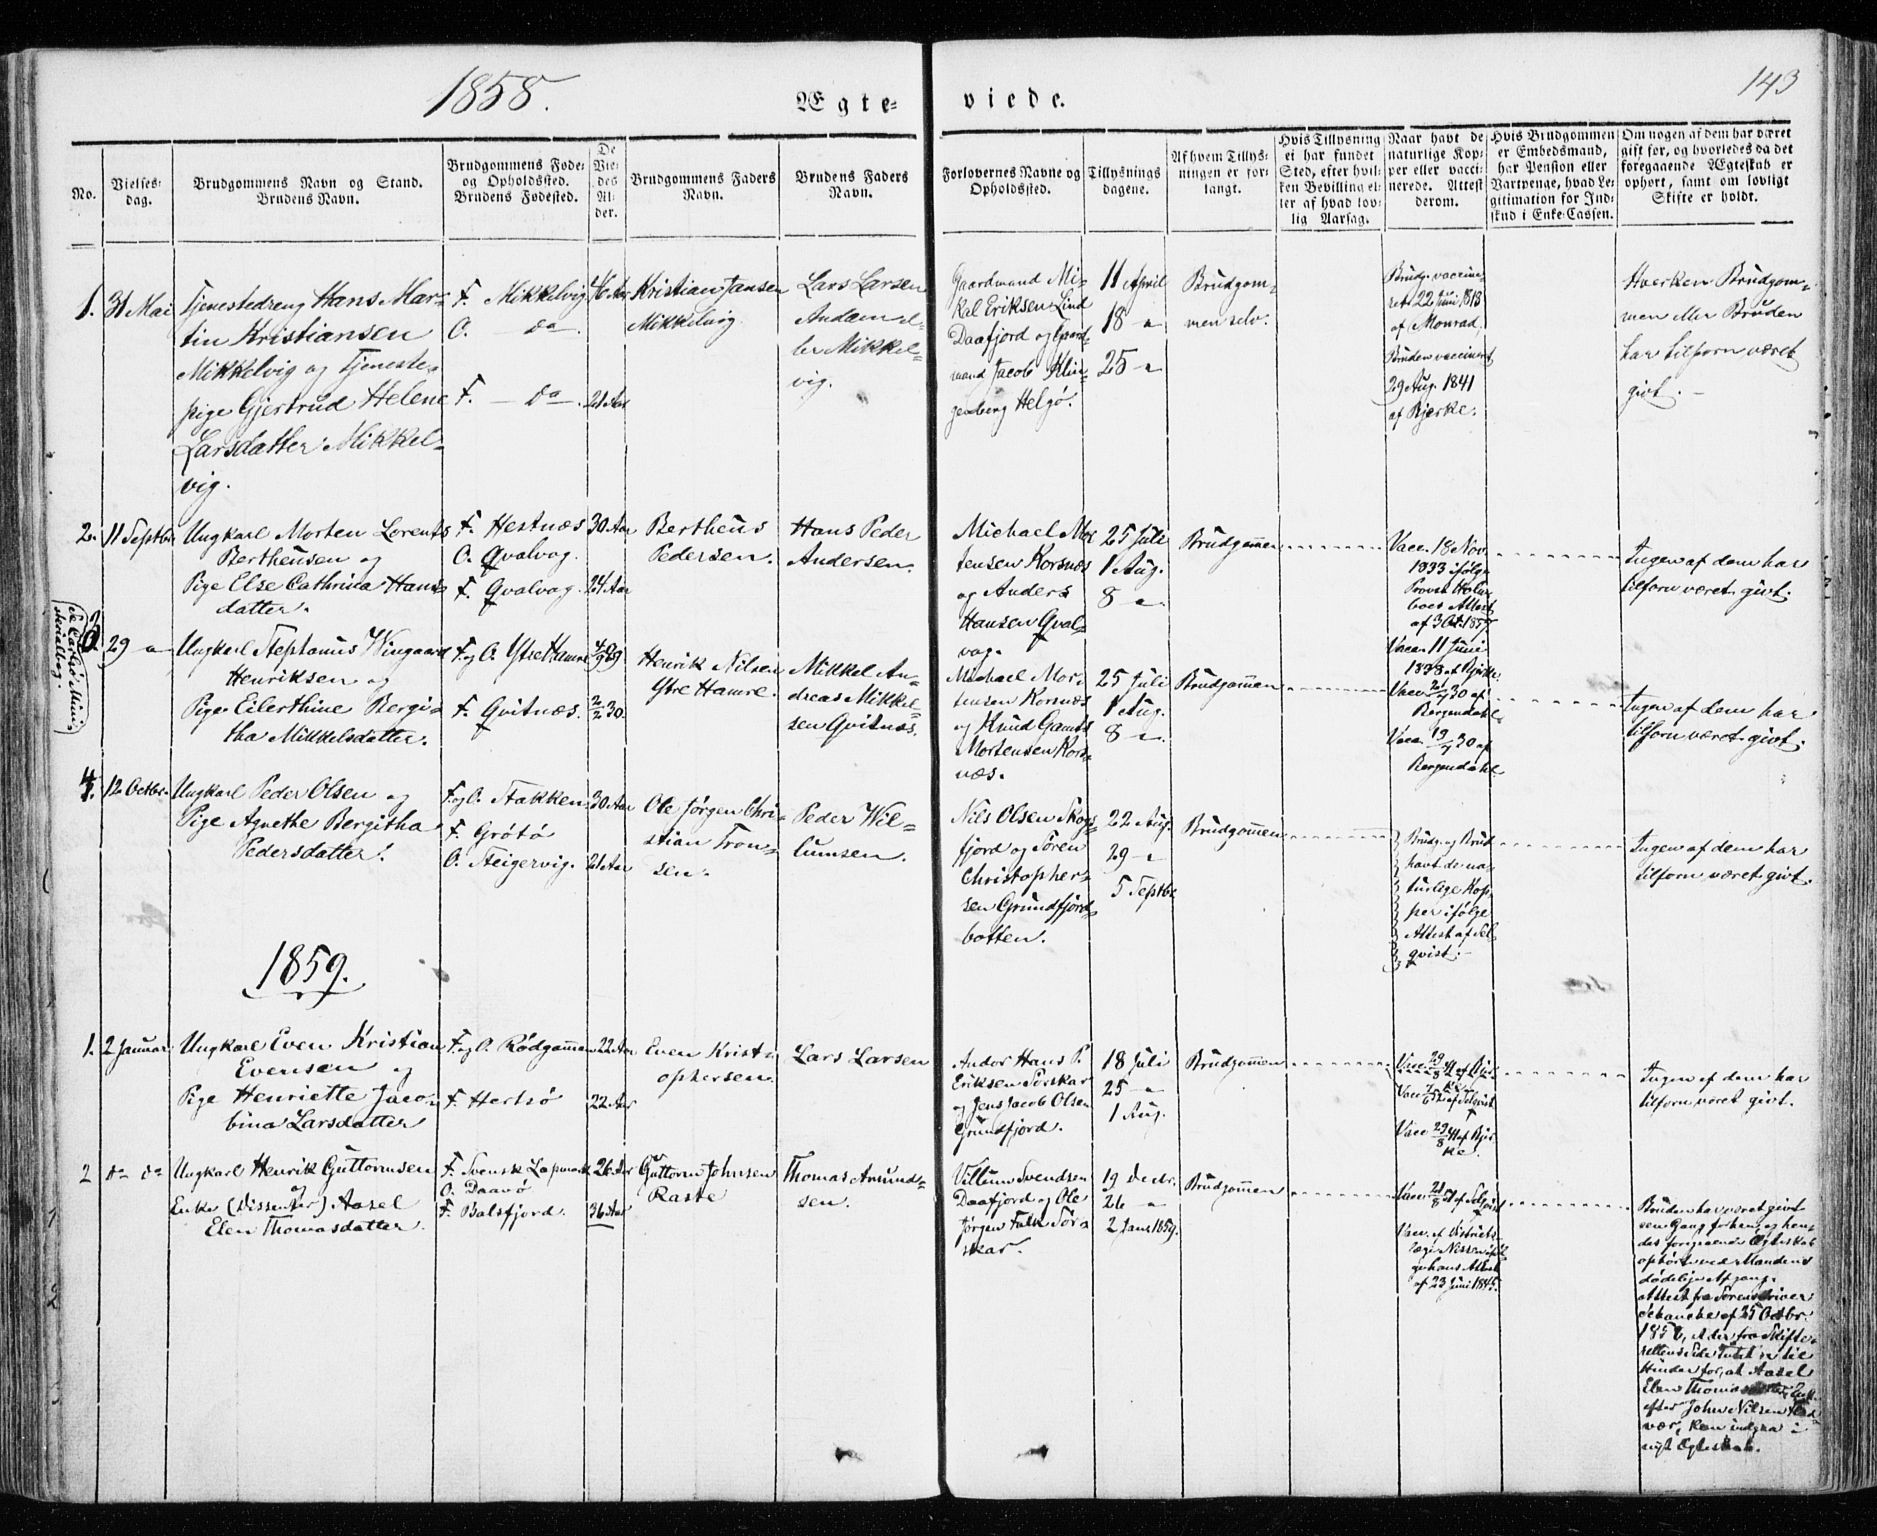 1858.
Ægte=
viede.
143
No.
Vielses=
dag.
Brudgommens Navn og Stand.
Brudens Navn.
Brudgommens Føde=
og Opholdssted.
Brudens Fødested.
De
Vie=
des
Al=
der.
Brudgommens Faders
Navn.
Brudens Faders
Navn.
Forlovernes Navne og
Opholdssted.
Tillysnings
dagene.
Af hvem Tillys=
ningen er for=
langt.
Hvis Tillysning
ei har fundet
Sted, efter hvil=
ken Bevilling el=
ler af hvad lov=
lig Aarsag.
Naar havt de
naturlige Kop=
per eller vacci=
nerede. Attest
derom.
Hvis Brudgommen
er Embedsmand,
har Pension eller
Vartpenge, hvad Le=
gitimation for Ind=
skud i Enke-Cassen.
Om nogen af dem har været
gift før, og hvorledes da det
foregaaende Ægteskab er
ophørt, samt om lovligt
Skifte er holdt.
1.
31 Mai
Tjenestedreng Hans Mar=
tin Kristiansen
Mikkelvig og Tjeneste=
pige Gjertrud Helene
Larsdatter Mikkel=
vig.
F. Mikkelvig
O. — do
F. — do —.
46 Aar
21 Aar
Kristian Jansen
Mikkelvig
Lars Larsen
Mikkel=
vig.
Gaardmand Mi=
kal Eriksen Lind
Daafjord og Gaard=
mand Jacob Klin=
genberg Helgø.
11 April
18 —
25 —
Brudgom=
men selv.
Brudg. vaccine=
ret 22 Juni 1818
af Monrad,
Bruden vaccineret
29 Aug. 1841
af Bjerke.
Hverken Brudgom=
men eller Bruden
har tilforn været
givt. —
2.
11 Septbr
Ungkarl Morten Lorents
Bertheusen og
Pige Else Cathrina Hans=
datter.
F. Hestnæs
O. Qvalvag.
F. Qvalvag.
30 Aar
24 Aar
Bertheus
Pedersen.
Hans Peder
Andersen.
Michael Mor=
tensen Korsnæs
og Anders
Hansen Qval=
vag.
25 Juli
1 Aug.
8 —
Brudgommen
Vacc. 18 Nov.
1833 ifølge
Provst Holm=
boes Attest
af 3 Oct. 1857
Vacc. 11 Juni
1838 af Bjerke.
Ingen af dem har
tilforn været givt.
3.
29 —
Ungkarl Stephanus Wingaard
Henriksen og
Pige Eilerthine Bergi=
tha Mikkelsdatter.
F. og O. Ytre Hamre
F. Qvitnæs.
4/9 29
2/2 30.
Henrik Nilsen
Ytre Hamre.
Mikkel An=
dreas Mikkel=
sen Qvitnæs.
Michael Mor=
tensen Korsnæs
og Knud Gamts
Mortensen Kors=
næs.
25 Juli
1 Aug.
8 —
Brudgommen
Vacc. 30 af
Bergendahl
Vacc. 19/7 30 af
Bergendahl.
Ingen af dem har
tilforn været givt.
4.
12 Octbr.
Ungkarl Peder Olsen og
Pige Agnethe Bergitha
Pedersdatter.
F. og O. Stakken
F. Grøtø
O. Steigervig.
30 Aar
21 Aar
Ole Jørgen Chri=
stian Tron=
sen.
Peder Wil=
lumsen.
Nils Olsen Skogs=
fjord og Sören
Christopher=
sen Grundfjord=
botten.
22 Aug.
29 —
5 Septbr
Brudgommen
Brudg. og Brud
havt de na=
turlige Kop=
per ifølge
Attest af Sel=
qvist. —
Ingen af dem har
tilforn været givt.
1859.
1.
2 Januar
Ungkarl Even Kristian
Evensen og
Pige Henriette Jaco=
bina Larsdatter
F. og O. Rødgammen
F. Hersø
22 Aar
22 Aar
Even Krist=
ophersen.
Lars Larsen
Andor Hans P.
Eriksen Sørskar
og Jens Jacob Olsen
Grundfjord.
18 Juli
25 —
1 Aug.
Brudgommen
Vacc. 29/8 41 af Bjer=
ke
Vacc. 29/8 41 af Bjer=
ke.
Ingen af dem har
tilforn været givt.
2
do do
Ungkarl Henrik Guttormsen
og
Enke (Dissenter) Aasel
Elen Thomasdatter.
F. Svensk Lapmark
O. Daavø
F. Balsfjord.
26 Aar
36 Aar
Guttorm Johnsen
Raste
Thomas Amund=
sen.
Villum Svendsen
Daafjord og Ole
Jørgen Falk Sør=
skar.
19 Decbr.
26 —
2 Janr 1859.
Brudgommen
Vacc. af Districts=
læge Nissen iføl=
ge hans Attest
af 23 Juni 1845.
Bruden har været givt
een Gang før hen, og hen=
des foregaaende Ægteskab
ophørt ved Mandens
dødelige Afgang.
Attest fra Sorenskriver
Schancke af 25 Octbr.
1858, at der fra Skifte=
rettens Side Intet er til
Hinder for, at Aasel
Elen Thomasdatter, Enke
efter John Nilsen
vær, kan indgaa i
nyt Ægteskab.